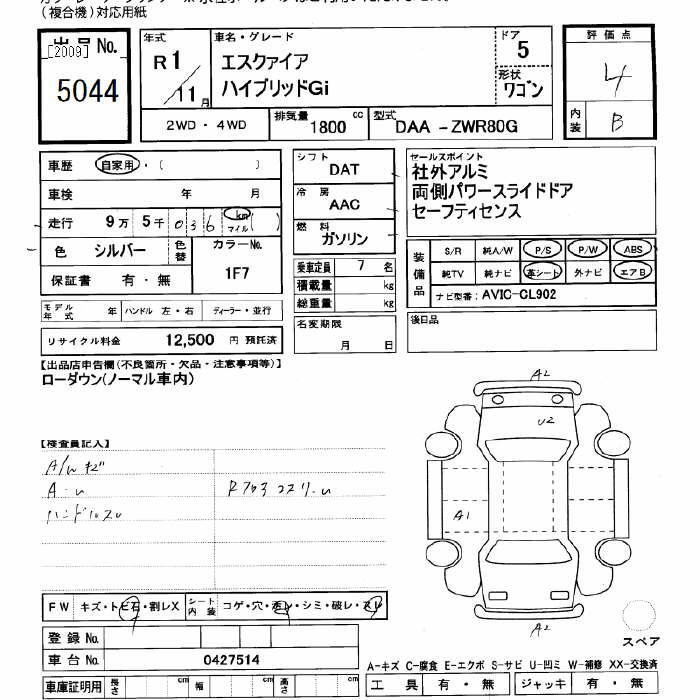 (複合機)対応用紙
出品 No.
[2009]
5044
年式
R1/11月
車名・グレード
エスクァイア
ハイブリッドGi
ドア
5
形状
ワゴン
評価点
4
内装
B
2WD ・ 4WD
排気量
1800 cc
型式
DAA -ZWR80G
車歴 自家用・( )
車検 年 月
走行 9万 5千 036 km マイル ( )
色 シルバー 色替 カラーNo.
1F7
保証書 有・無
モデル年式 年 ハンドル 左・右 ディーラー・並行
リサイクル料金 12,500 円 預託済
シフト
DAT
冷房
AAC
燃料
ガソリン
乗車定員 7 名
積載量 kg
総重量 kg
名変期限
月 日
セールスポイント
社外アルミ
両側パワースライドドア
セーフティセンス
装備品
S/R 純A/W P/S P/W ABS
純TV 純ナビ 革シート 外ナビ エアB
ナビ型番: AVIC-CL902
後日品
【出品店申告欄(不良箇所・欠品・注意事項等)】
ローダウン(ノーマル車内)
【検査員記入】
A/W キズ
A・U
ハンドルスレ
A2
U2
A1
A2
FW キズ・トビ石・割レX シート内装 コゲ・穴・汚レ・シミ・破レ・スレ
登録 No.
車台 No. 0427514
車庫証明用 長さ cm 幅 cm 高さ cm
スペア
A-キズ C-腐食 E-エクボ S-サビ U-凹ミ W-補修 XX-交換済
工具 有・無 ジャッキ 有・無